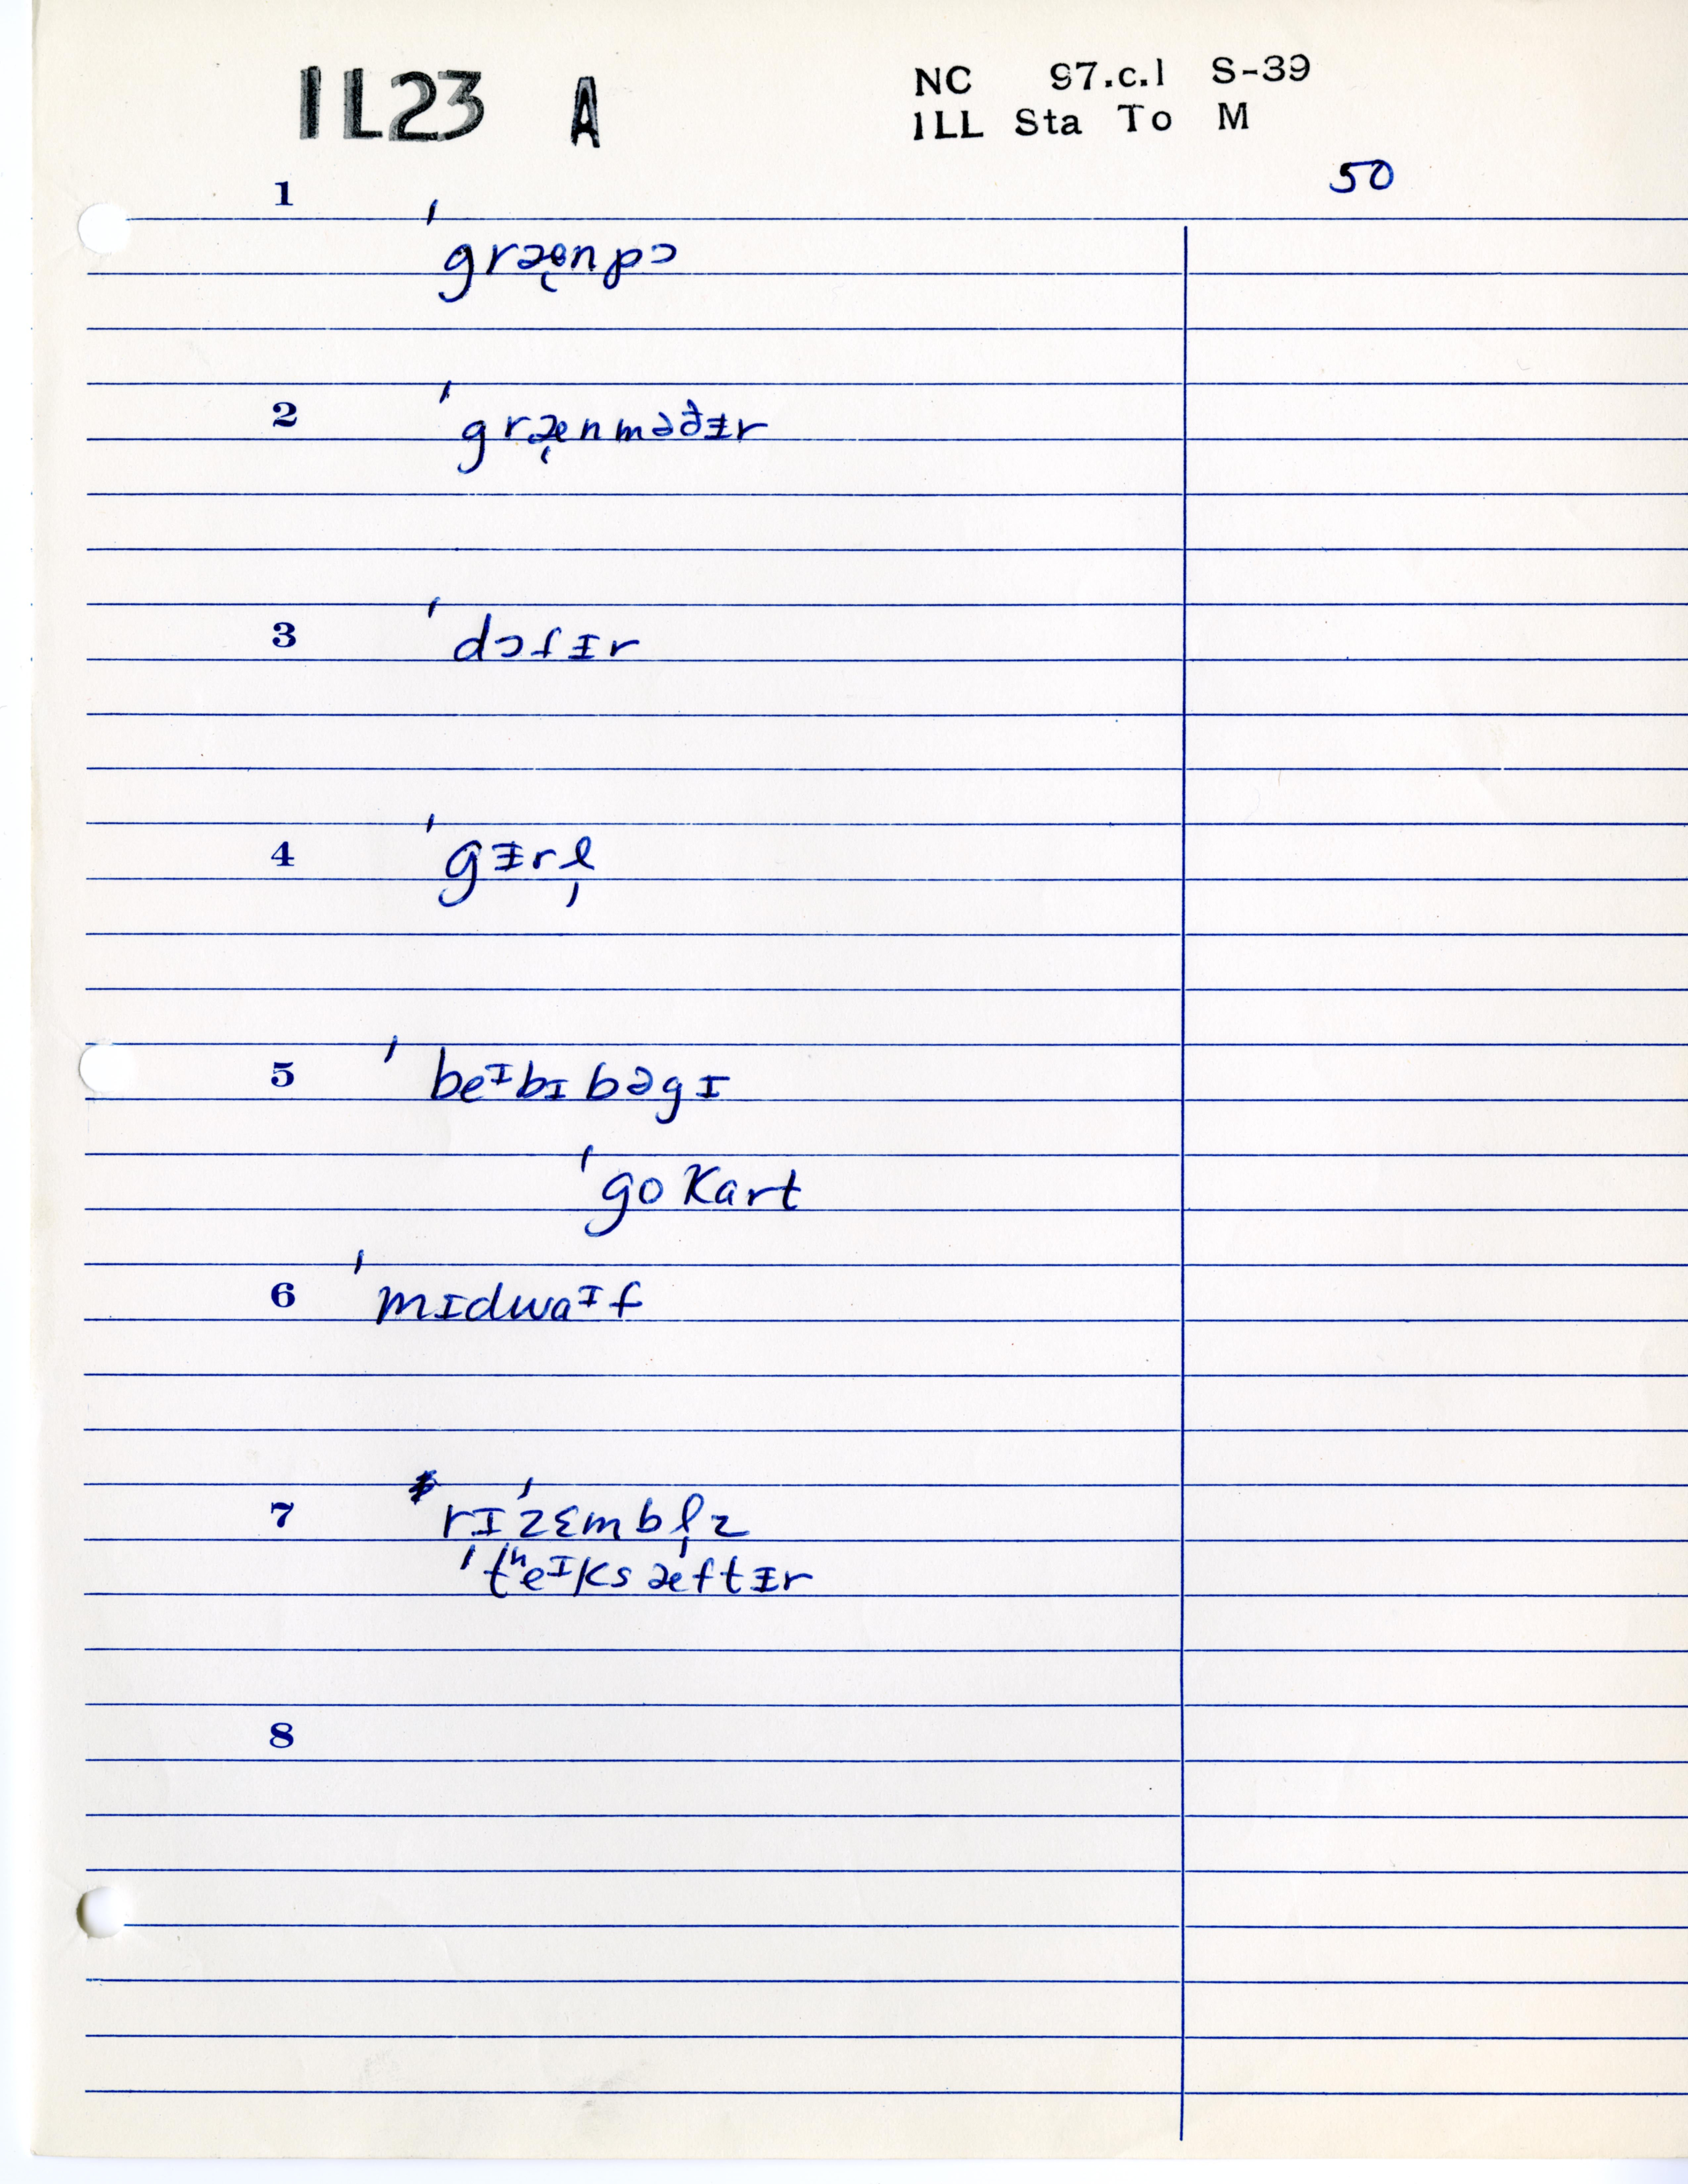 1L23 A
NC 97.c.1 S-39
1LL Sta To M
50
1 ˈgræ̨npɔ
2 ˈgræ̨nməðɨr
3 ˈdɔfɨr
4 ˈgɨrl̩
5 ˈbeᴵbɪbəgɪ
ˈgokart
6 ˈmɪdwaᴵf
7 rɪˈzɛmbl̩z
ˈtʰeᴵksæftɨr
8